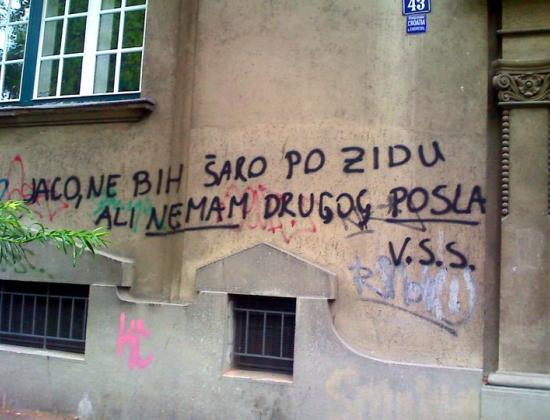 43
CROATIA
JACO, NE BIH ŠARO PO ZIDU
ALI NEMAM DRUGOG POSLA
V.S.S.